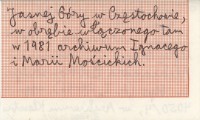 Jasnej Góry w Częstochowie,
w obrębie włączonego tam
w 1981 archiwum Ignacego
i Marii Mościckich.